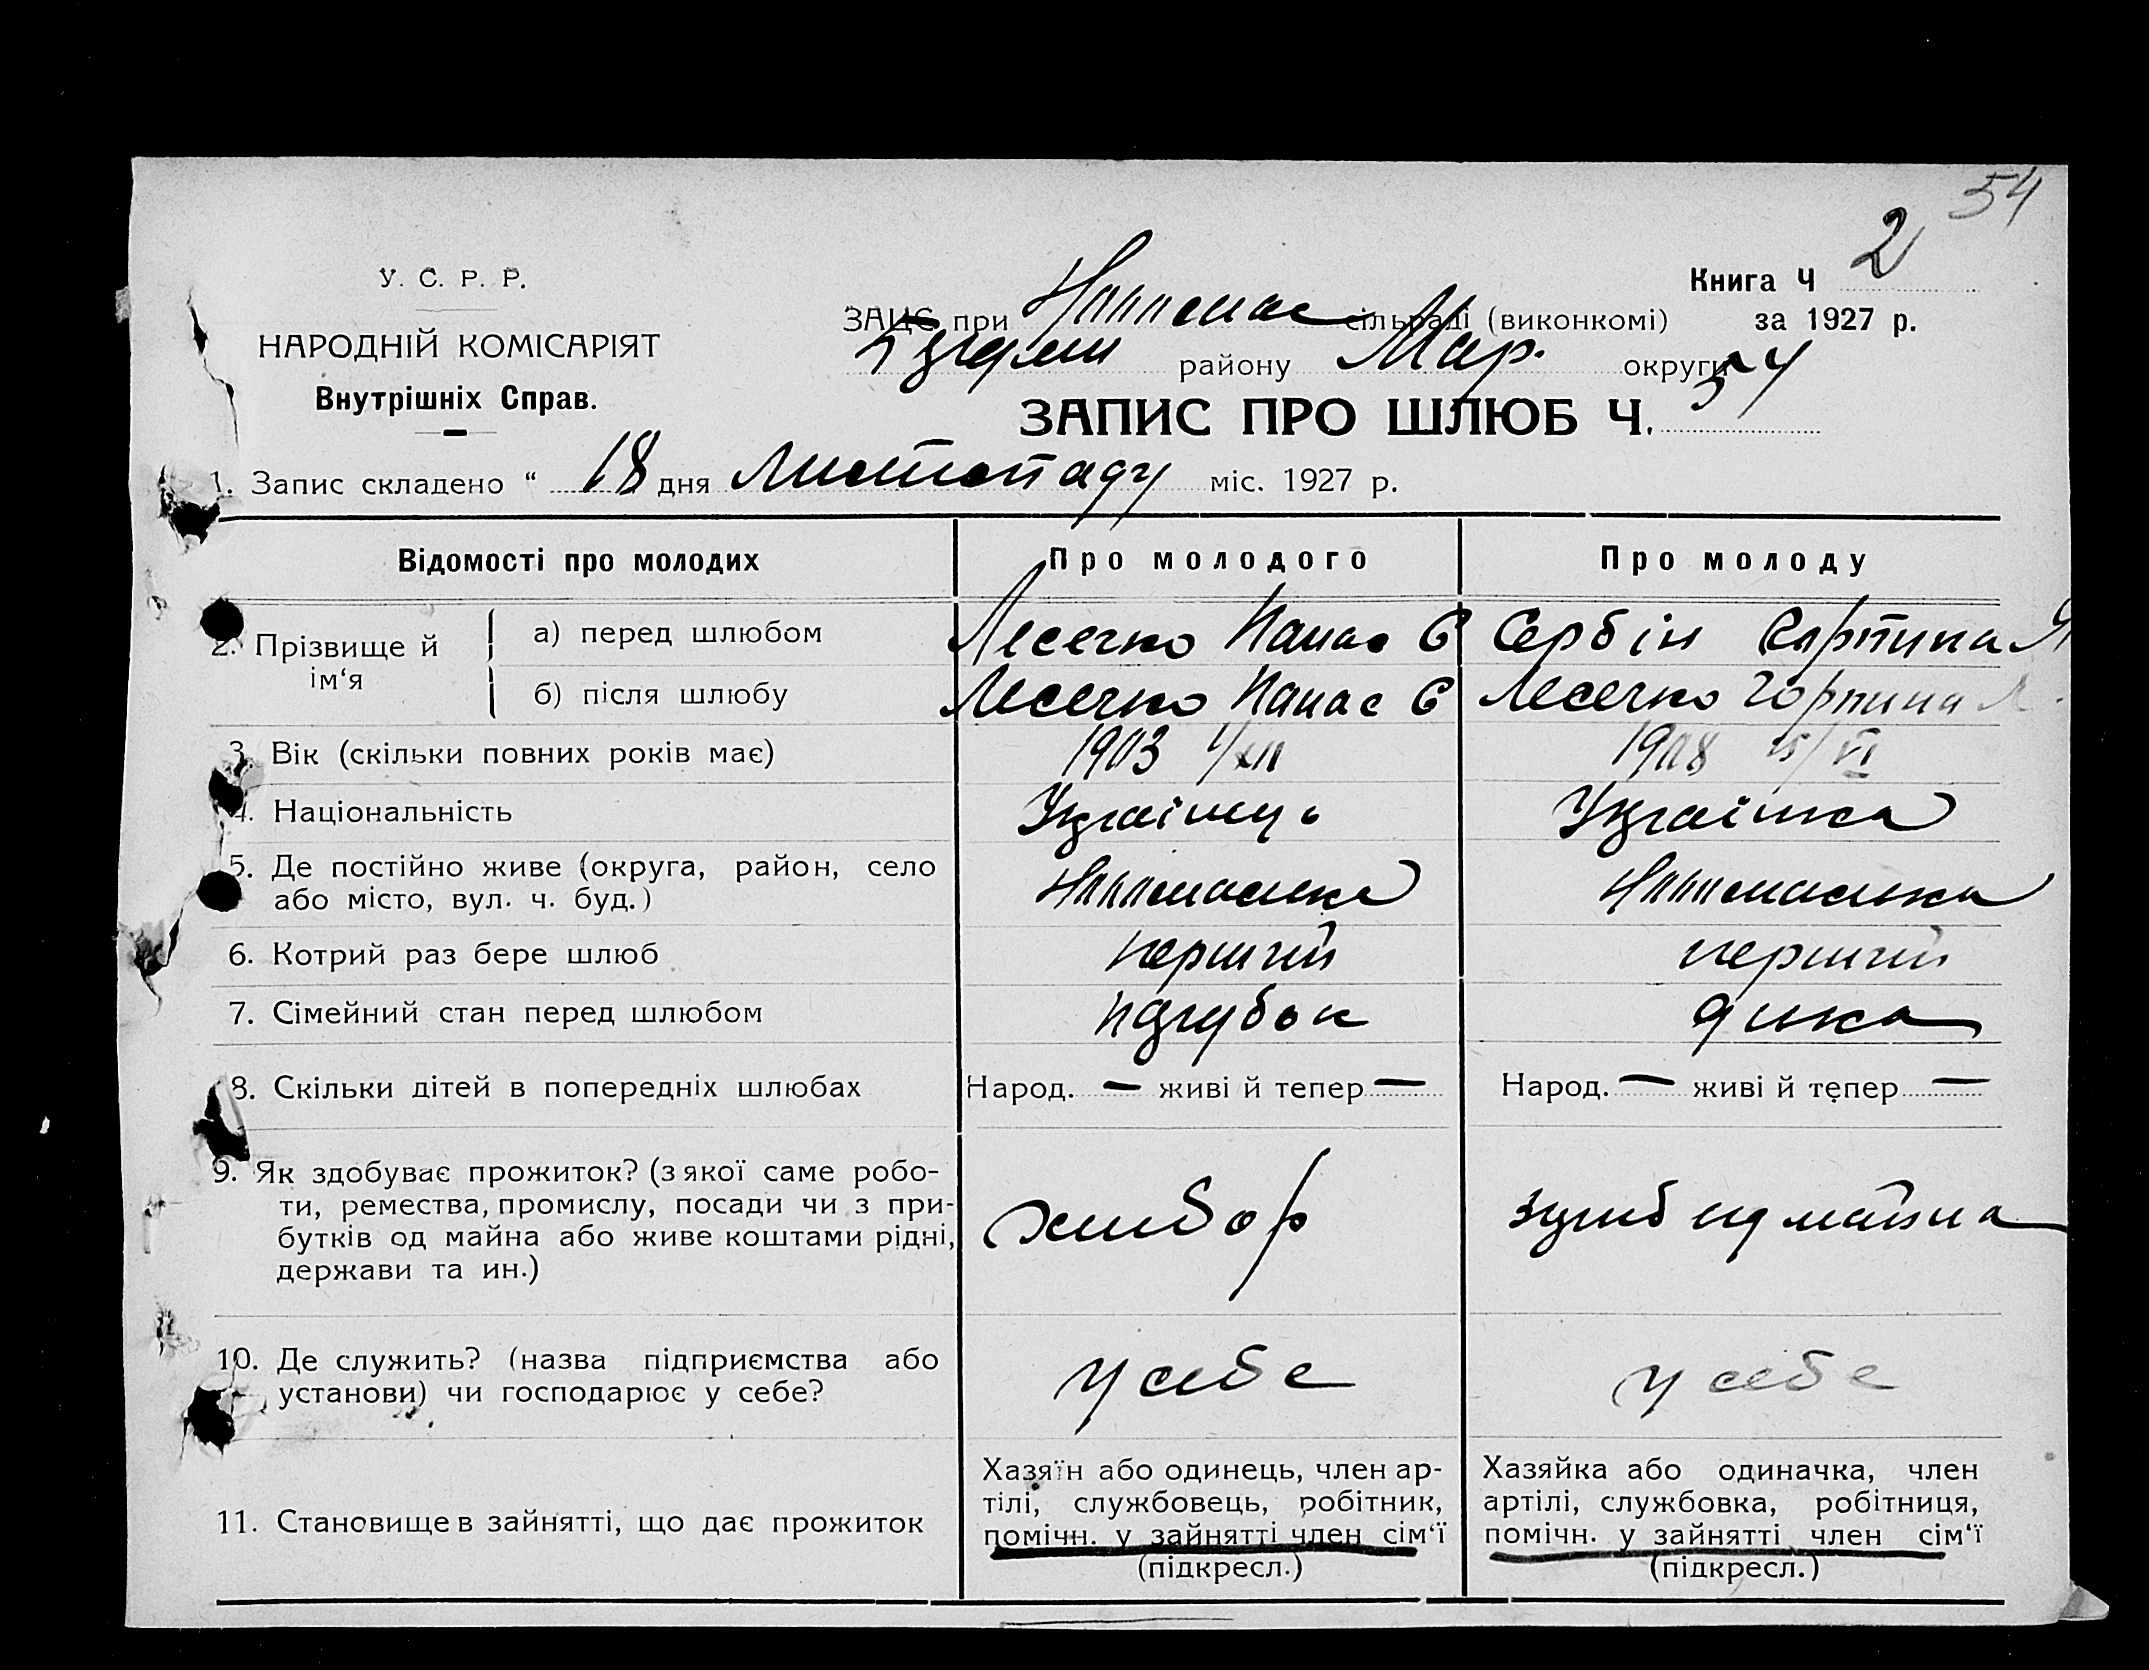 54
У. С. Р. Р.
НАРОДНІЙ КОМІСАРІЯТ
Внутрішніх Справ.
Книга Ч 2
за 1927 р.
ЗАЦС при сільраді (виконкомі)
району Мар. округи
ЗАПИС ПРО ШЛЮБ Ч. 54
1. Запис складено “ 18 дня листопаду міс. 1927 р.
Відомості про молодих Про молодого Про молоду
2. Прізвище й ім‘я
а) перед шлюбом Лесечко Панас Є Сербін
б) після шлюбу Лесечко Панас Є Лесечко Горпина
3. Вік (скільки повних років має) 1903 1/XII 1908 15/VI
4. Національність Українець Українка
5. Де постійно живе (округа, район, село
або місто, вул. ч. буд.)
6. Котрий раз бере шлюб перший перший
7. Сімейний стан перед шлюбом парубок дівка
8. Скільки дітей в попередніх шлюбах Народ. — живі й тепер — Народ. — живі й тепер —
9. Як здобуває прожиток? (з якої саме робо-
ти, ремества, промислу, посади чи з при-
бутків од майна або живе коштами рідні,
держави та ин.)
хлібор
10. Де служить? (назва підприємства або
установи) чи господарює у себе?
у себе у себе
11. Становище в зайнятті, що дає прожиток
Хазяїн або одинець, член ар-
тілі, службовець, робітник,
помічн. у зайнятті член сім‘ї
(підкресл.)
Хазяйка або одиначка, член
артілі, службовка, робітниця,
помічн. у зайнятті член сім‘ї
(підкресл.)